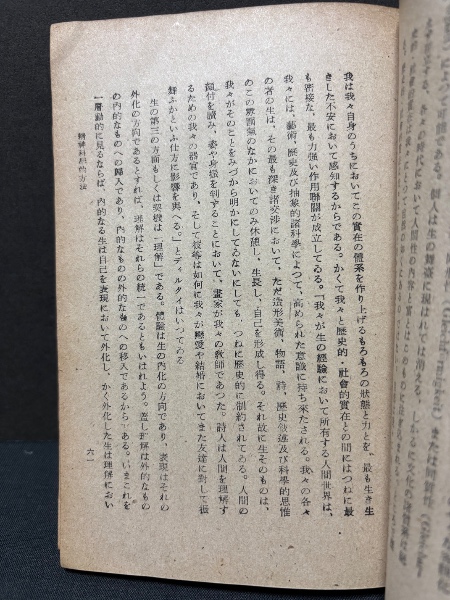 我は我々自身のうちにおいてこの實在の體系を作り上げるもろもろの狀態と力とを、最も生き生
きした不安において感知するからである。かくて我々と歷史的・社會的實在との間にはつねに最
も密接な、最も力强い作用聯關が成立してゐる。「我々が生の經驗において所有する人間世界は、
我々には、藝術、歷史及び抽象的諸科學によつて、高められた意識に持ち來たされる。我々の各々
の者の生は、その最も深き諸交涉において、ただ造形美術、物語、詩、歷史敍述及び科學的思惟
のこの雰圍氣のなかにおいてのみ休憩し、生長し、自己を形成し得る。それ故に生そのものは、
我々がそのことをみづから明かにしてゐないにしても、つねに歷史的に制約されてゐる。人間の
顏付を讀み、姿や身振を解することにおいて、畫家が我々の敎師であつた。詩人は人間を理解す
るための我々の器官であり、そして彼等は如何に我々が戀愛や結婚においてまた友達に對して振
舞ふかといふ仕方に影響を與へる。」とディルタイはいつてゐる
生の第三の方面もしくは契機は「理解」である。體驗は生の內化の方向であり、表現はそれの
外化の方向であるとすれば、理解はそれらの統一であるともいはれよう。蓋し理解は外的なもの
の內的なものへの歸入であり、內的なものの外的なものへの移入であるからである。いまこれを
一層動的に見るならば、內的なる生は自己を表現において外化し、かく外化した生は理解におい
解釋學的方法
六一